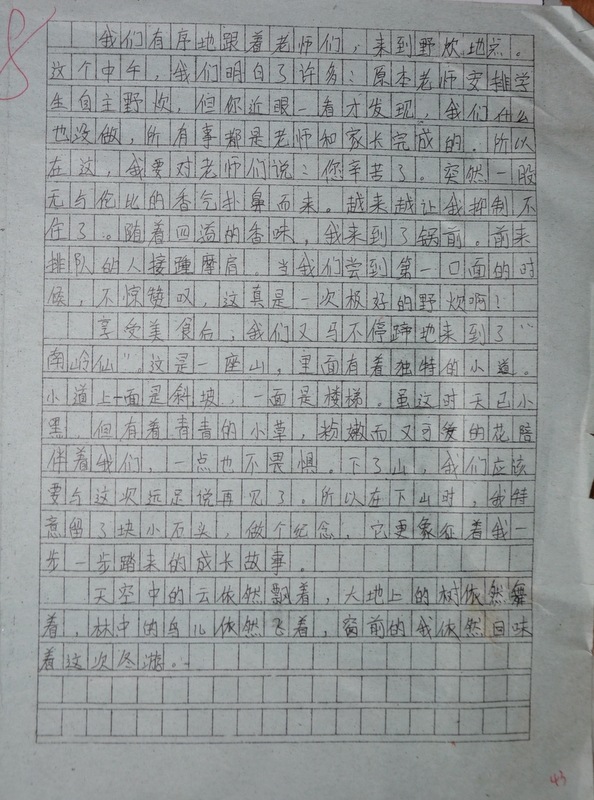 我们有序地跟着老师们，来到野炊地点。
这个中午，我们明白了许多：原本老师安排学
生自主野炊，但你近眼一看才发现，我们什么
也没做，所有事都是老师和家长完成的。所以
在这，我要对老师们说：您辛苦了。突然一股
无与伦比的香气扑鼻而来。越来越让我抑制不
住了。随着四溢的香味，我来到了锅前。前来
排队的人接踵摩肩。当我们尝到第一口面的时
候，不惊赞叹，这真是一次极好的野炊啊！
享受美食后，我们又马不停蹄地来到了“
南岭仙”。这是一座山，里面有着独特的小道。
小道上一面是斜坡，一面是楼梯。虽这时天已小
黑，但有着青青的小草，粉嫩而又可爱的花陪
伴着我们，一点也不畏惧。下了山，我们应该
要与这次远足说再见了。所以在下山时，我特
意留了块小石头，做个纪念，它更象征着我一
步一步踏来的成长故事。
天空中的云依然飘着，大地上的树依然舞
着，林中的鸟儿依然飞着，窗前的我依然回味
着这次冬游。
43